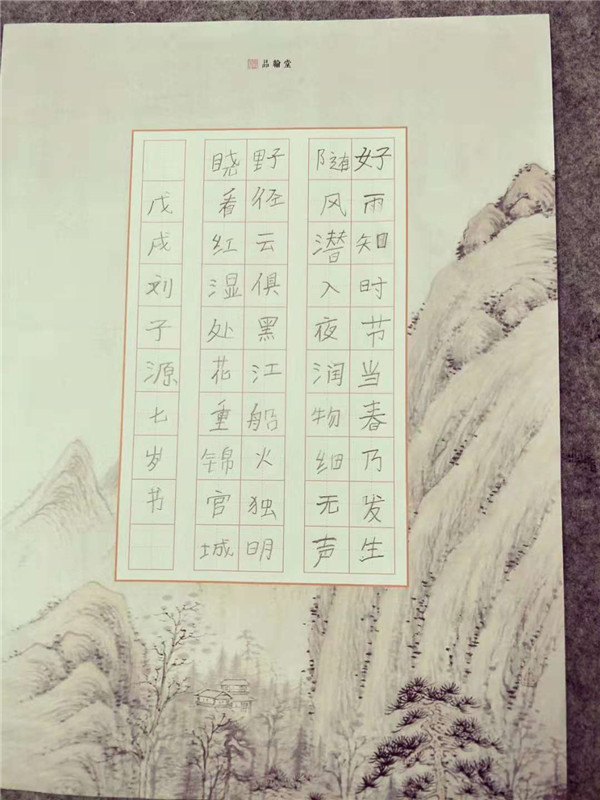 品翰堂
好雨知时节当春乃发生
随风潜入夜润物细无声
野径云俱黑江船火独明
晓看红湿处花重锦官城
戊戌刘子源七岁书